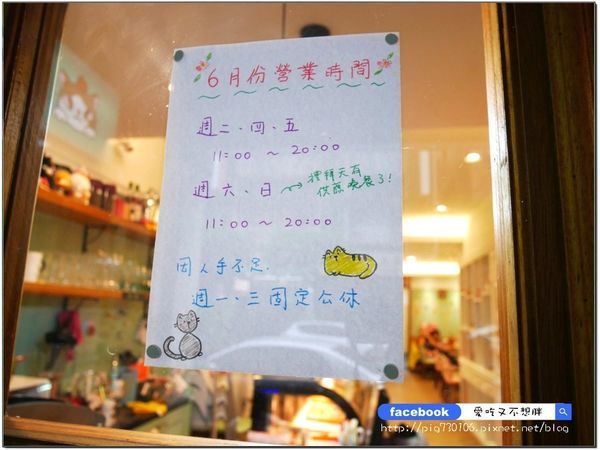 6月份營業時間
週二、四、五
11:00 ~ 20:00
週六、日
禮拜天有
供應晚餐了!
11:00 ~ 20:00
因人手不足.
週一、三固定公休
facebook 愛吃又不想胖
http://pig730106.pixnet.net/blog